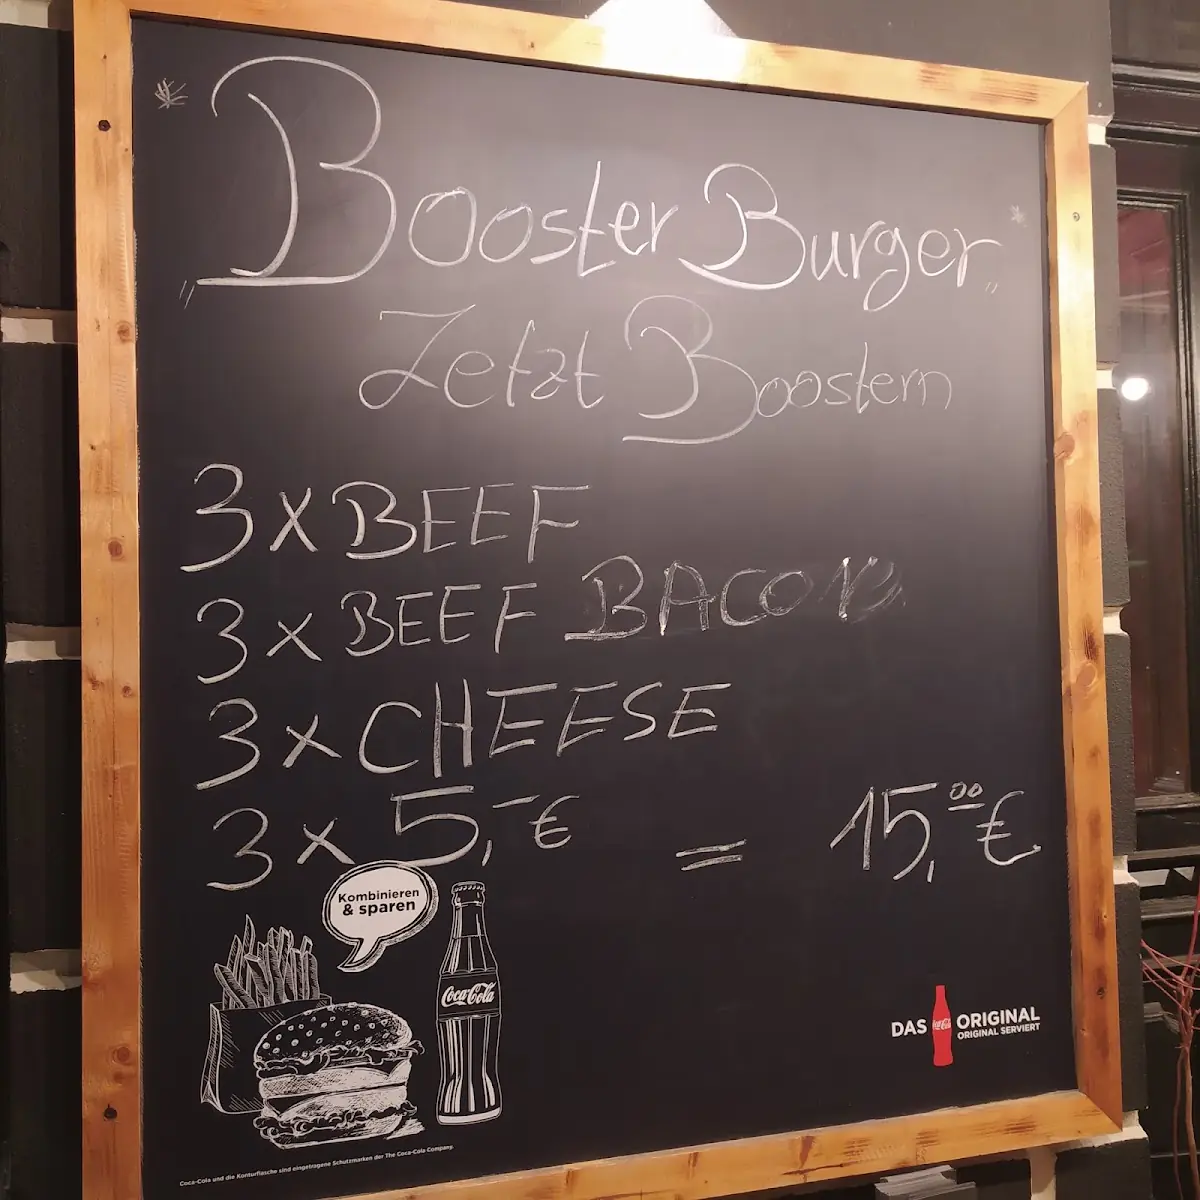 „Booster Burger"
Jetzt Boostern
3 x BEEF
3 x BEEF BACON
3 x CHEESE
3 x 5,-€ = 15,00 €
Kombinieren
& sparen
Coca-Cola
DAS Coca-Cola ORIGINAL
ORIGINAL SERVIERT
Coca-Cola und die Konturflasche sind eingetragene Schutzmarken der The Coca-Cola Company.